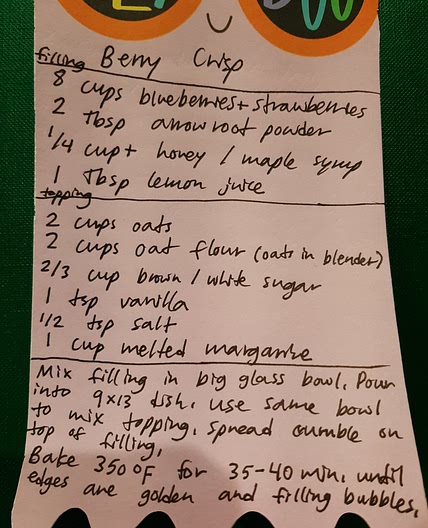 Berry Crisp
filling
8 cups blueberries + strawberries
2 Tbsp arrowroot powder
1/4 cup + honey / maple syrup
1 Tbsp lemon juice
topping
2 cups oats
2 cups oat flour (oats in blender)
2/3 cup brown / white sugar
1 tsp vanilla
1/2 tsp salt
1 cup melted margarine
Mix filling in big glass bowl. Pour
into 9x13 dish. Use same bowl
to mix topping. Spread crumble on
top of filling.
Bake 350°F for 35-40 min, until
edges are golden and filling bubbles.